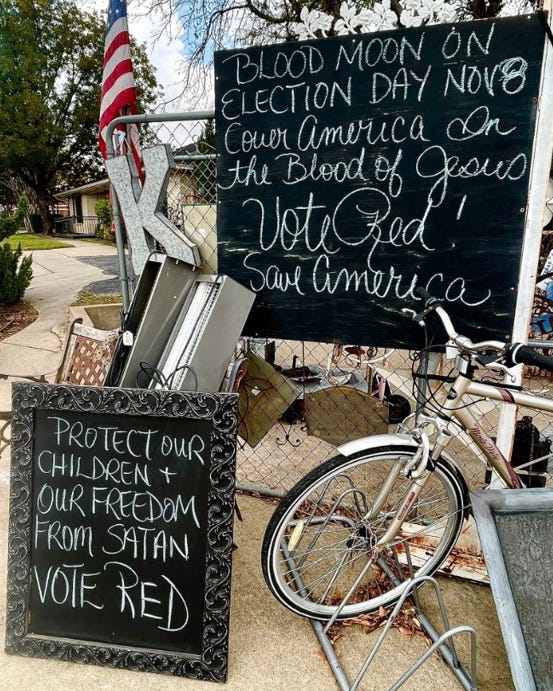 BLOOD MOON ON
ELECTION DAY NOV 8
Cover America In
the Blood of Jesus
Vote Red!
Save America
K
PROTECT OUR
CHILDREN +
OUR FREEDOM
FROM SATAN
VOTE RED